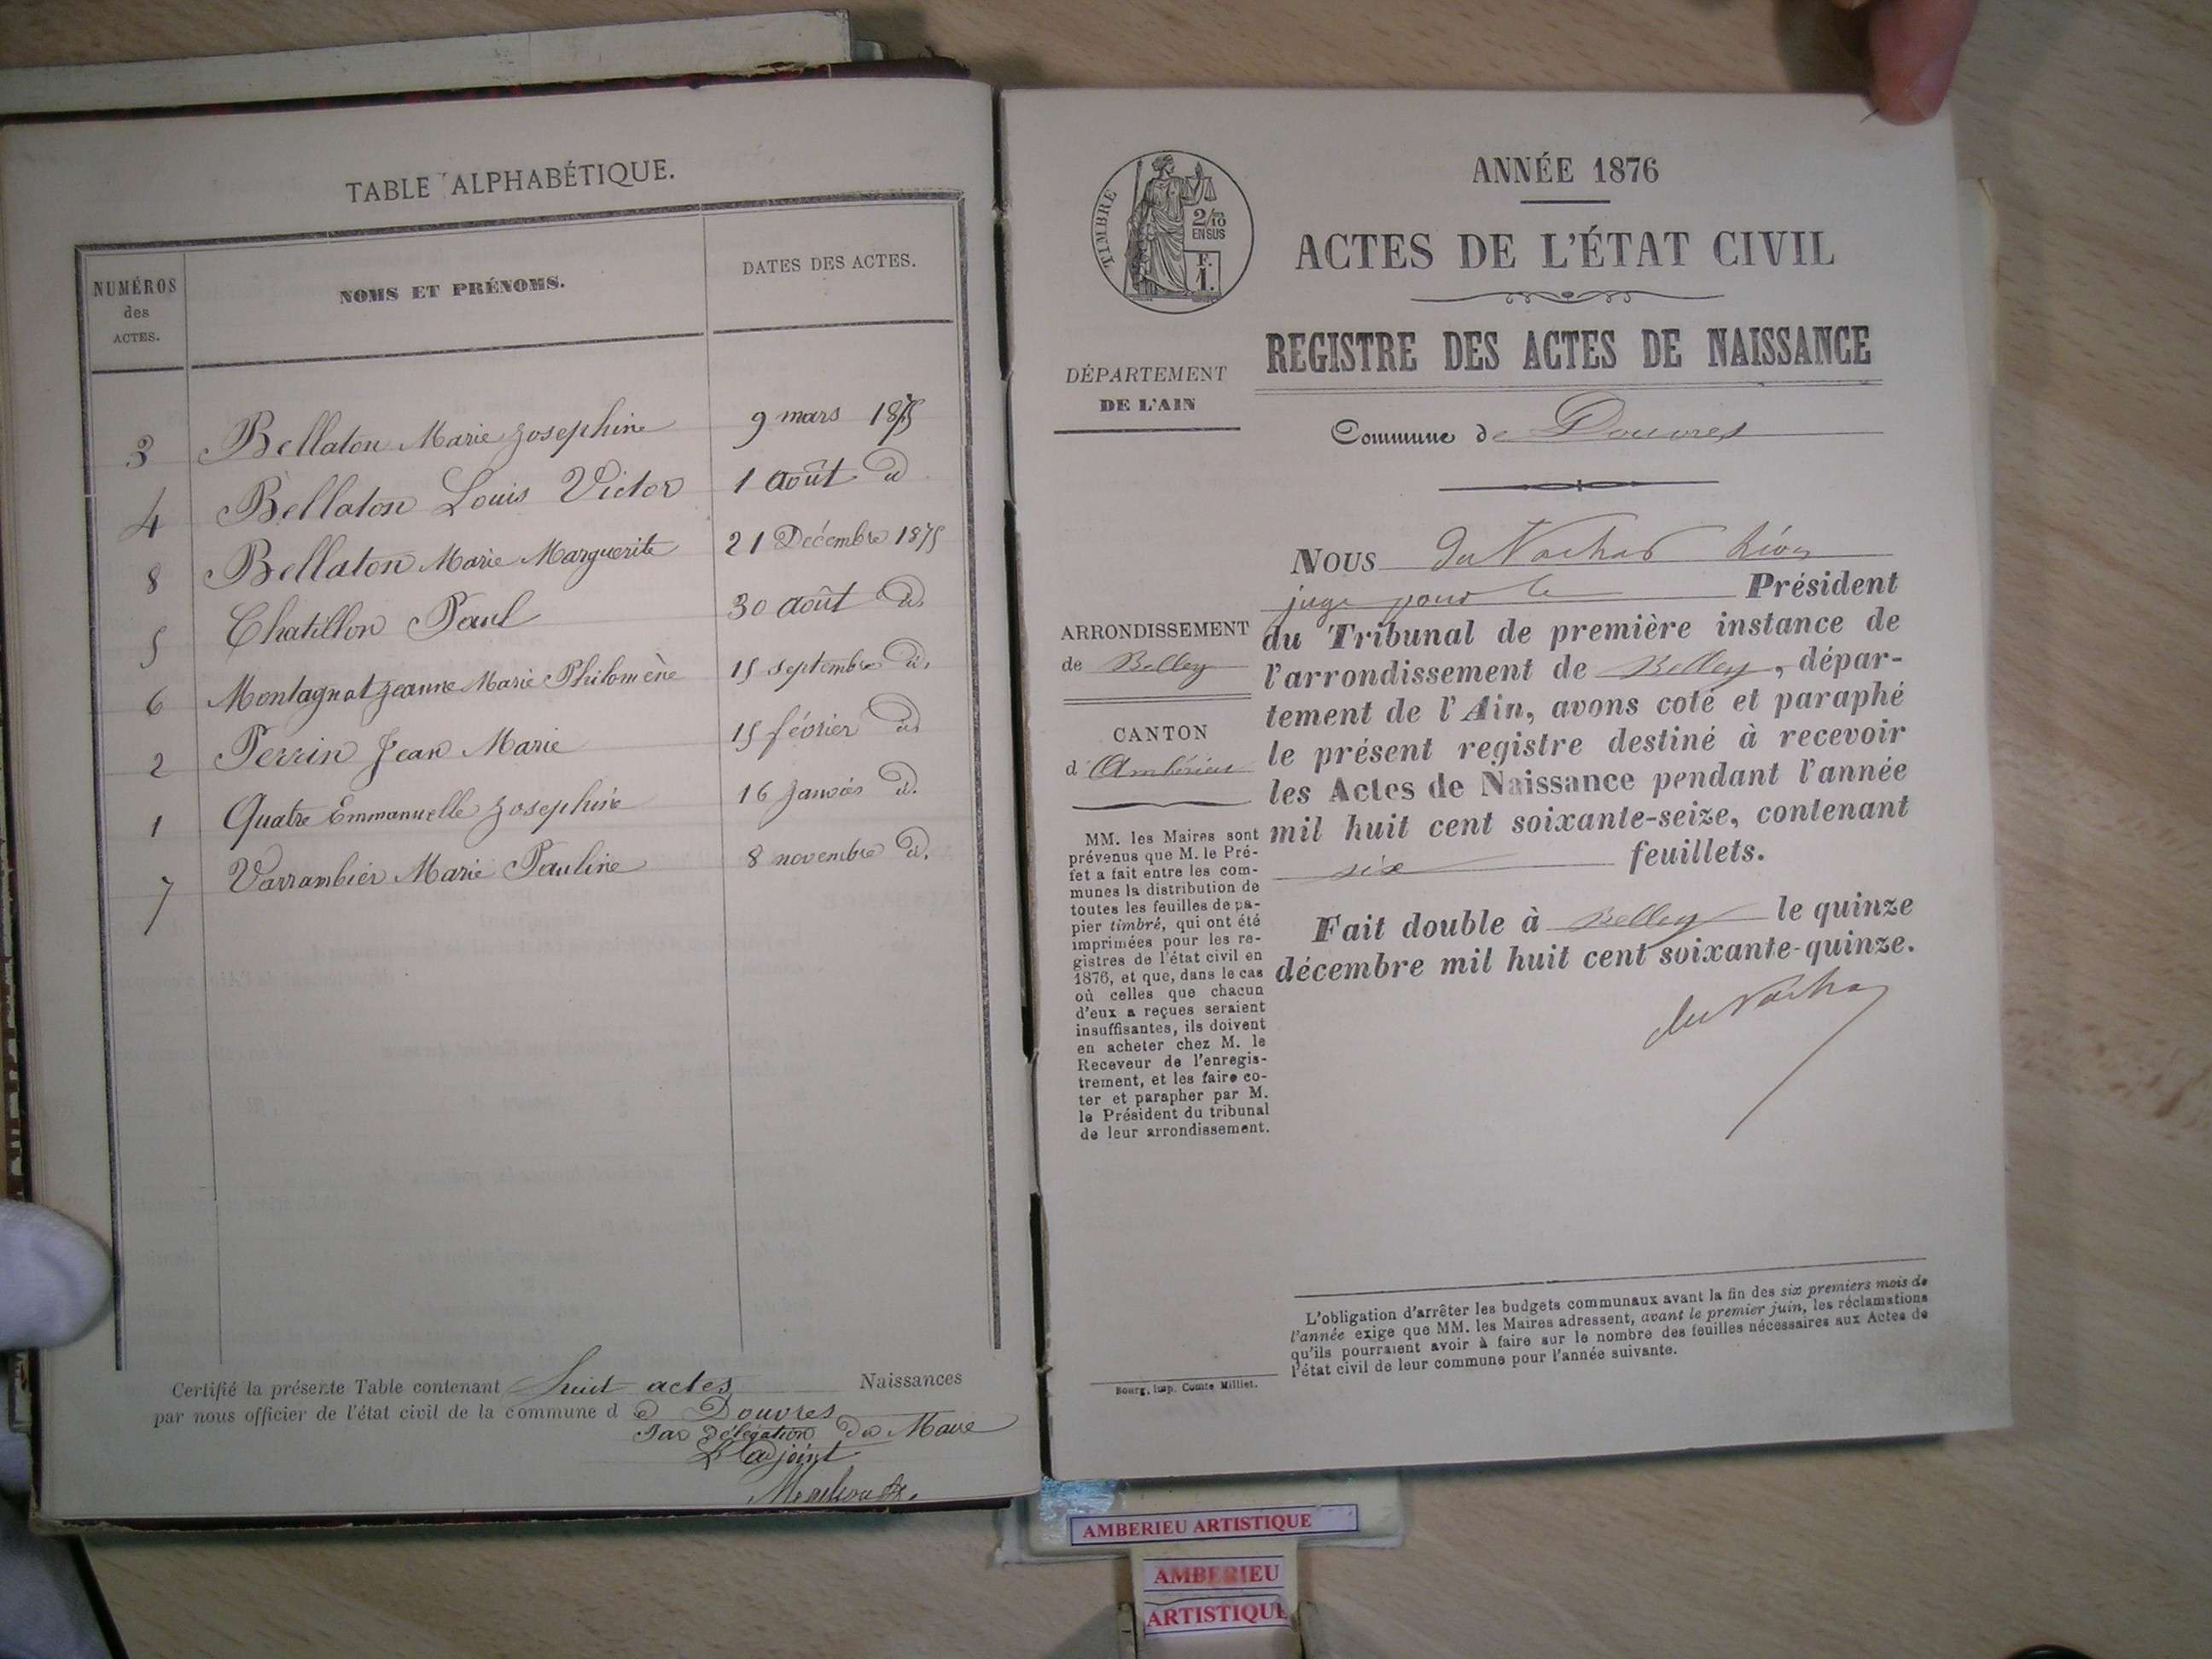 TABLE ALPHABÉTIQUE.
NUMÉROS
des
ACTES.
NOMS ET PRÉNOMS.
DATES DES ACTES.
3 Bellaton Marie Josephine 9 mars 1875
4 Bellaton Louis Victor 1 août d
8 Bellaton Marie Marguerite 21 Décembre 1875
5 Chatillon Paul 30 août d.
6 Montagnat Jeanne Marie Philomène 15 septembre d.
2 Perrin Jean Marie 15 février d.
1 Quatre Emmanuelle Josephine 16 Janvier d.
7 Varrambier Marie Pauline 8 novembre d.
Certifié la présente Table contenant huit actes Naissances
par nous officier de l'état civil de la commune de Douvres
Par délégation du Maire
L'adjoint
TIMBRE
2/10
EN SUS
F.
1.
ANNÉE 1876
ACTES DE L'ÉTAT CIVIL
REGISTRE DES ACTES DE NAISSANCE
DÉPARTEMENT
DE L'AIN
Commune de Douvres
ARRONDISSEMENT
de Belley
CANTON
d'Ambérieu
MM. les Maires sont
prévenus que M. le Pré-
fet a fait entre les com-
munes la distribution de
toutes les feuilles de pa-
pier timbré, qui ont été
imprimées pour les re-
gistres de l'état civil en
1876, et que, dans le cas
où celles que chacun
d'eux a reçues seraient
insuffisantes, ils doivent
en acheter chez M. le
Receveur de l'enregis-
trement, et les faire co-
ter et parapher par M.
le Président du tribunal
de leur arrondissement.
NOUS du Léon
juge pour le Président
du Tribunal de première instance de
l'arrondissement de Belley, dépar-
tement de l'Ain, avons coté et paraphé
le présent registre destiné à recevoir
les Actes de Naissance pendant l'année
mil huit cent soixante-seize, contenant
six feuillets.
Fait double à Belley le quinze
décembre mil huit cent soixante-quinze.
L'obligation d'arrêter les budgets communaux avant la fin des six premiers mois de
l'année exige que MM. les Maires adressent, avant le premier juin, les réclamations
qu'ils pourraient avoir à faire sur le nombre des feuilles nécessaires aux Actes de
l'état civil de leur commune pour l'année suivante.
Bourg, imp. Comte Milliet.
AMBERIEU ARTISTIQUE
AMBERIEU
ARTISTIQUE